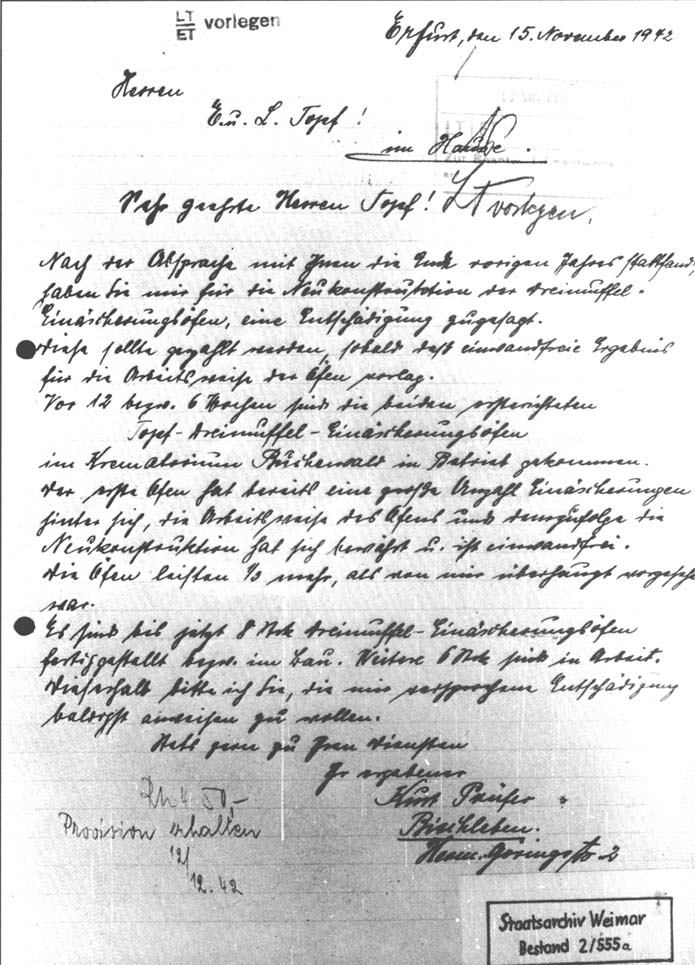 LT
ET vorlegen
Erfurt, den 15. November 1942
Herren
E. u. L. Topf!
im Hause.
Sehr geehrte Herren Topf!
LT vorlegen.
Nach der Absprache mit Ihnen die Ende vorigen Jahres stattfand,
haben Sie mir für die Neukonstruktion der Dreimuffel-
Einäscherungsöfen, eine Entschädigung zugesagt.
Diese sollte gezahlt werden, sobald das einwandfreie Ergebnis
für die Arbeitsweise der Öfen vorlag.
Vor 12 bezw. 6 Wochen sind die beiden ersterichteten
Topf-Dreimuffel-Einäscherungsöfen
im Krematorium Buchenwald in Betrieb gekommen.
Der erste Ofen hat bereits eine große Anzahl Einäscherungen
hinter sich, die Arbeitsweise des Ofens und demzufolge die
Neukonstruktion hat sich bewährt u. ist einwandfrei.
Die Öfen leisten 1/3 mehr, als von mir überhaupt vorgesehen
war.
Es sind bis jetzt 8 Stck Dreimuffel-Einäscherungsöfen
fertiggestellt bezw. im Bau. Weitere 6 Stck sind in Arbeit.
Dieserhalb bitte ich Sie, die mir versprochene Entschädigung
baldigst anweisen zu wollen.
Stets gern zu Ihren Diensten
Ihr ergebener
Kurt Prüfer
Bischleben.
Herm. Göringstr. 2
Provision erhalten
12/
12. 42
Staatsarchiv Weimar
Bestand 2/555a